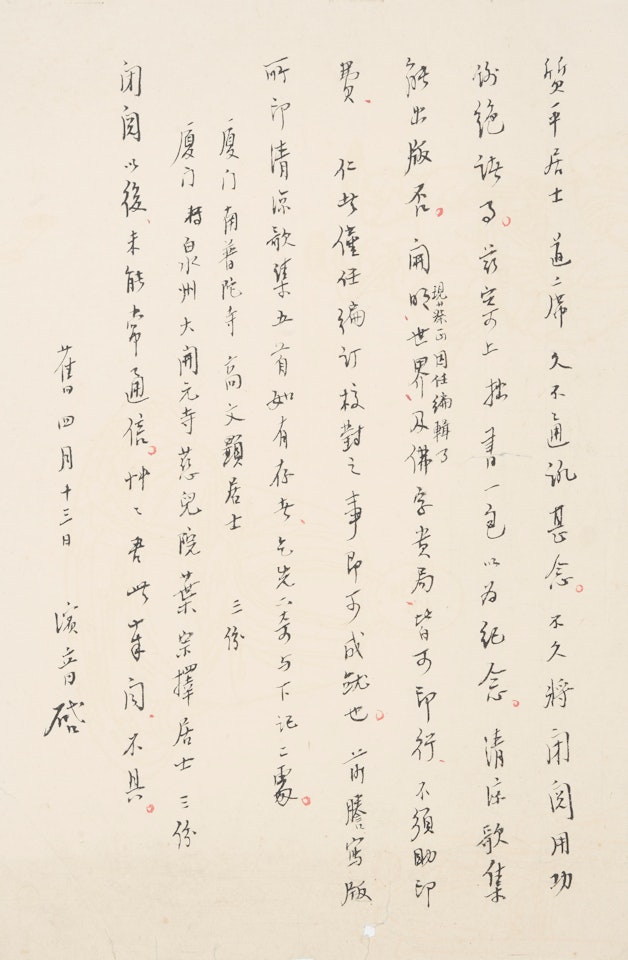 質平居士道席 久不通訊甚念。不久將閉關用功
謝絕諸事。茲寄上拙書一包以為紀念。清涼歌集
能出版否。開明、世界、及佛學書局、皆可印行、不須助印
現蔡丏因任編輯了
費、 仁者僅任編訂校對之事即可成就也。前謄寫版
所印清涼歌集五首如有存者乞先寄與下記二處。
廈门南普陀寺高文顯居士 三份
廈门轉泉州大開元寺慈兒院葉宗擇居士三份
閉關以後、未能常通信。艸〻書此奉聞、不具。
舊四月十三日 演音啟